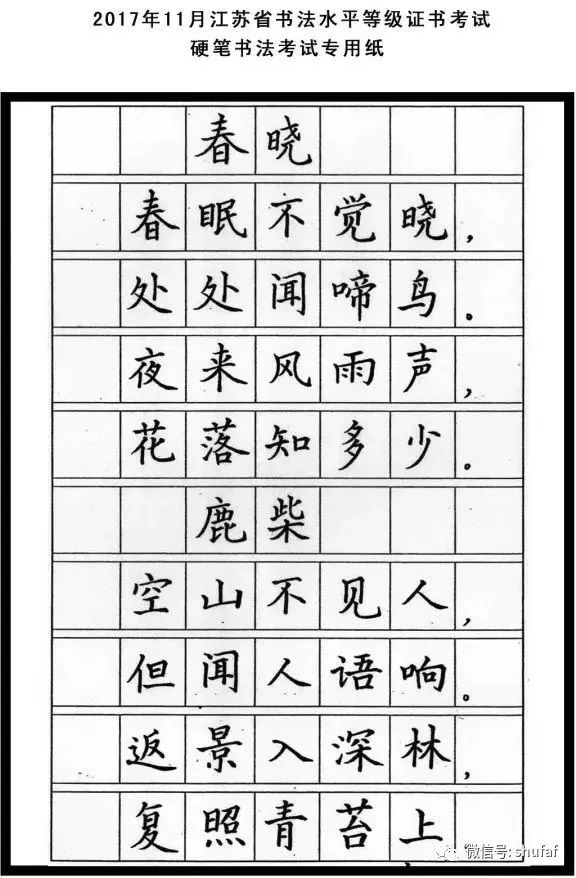 2017年11月江苏省书法水平等级证书考试
硬笔书法考试专用纸
春晓
春眠不觉晓，
处处闻啼鸟。
夜来风雨声，
花落知多少。
鹿柴
空山不见人，
但闻人语响。
返景入深林，
复照青苔上。
微信号: shufaf